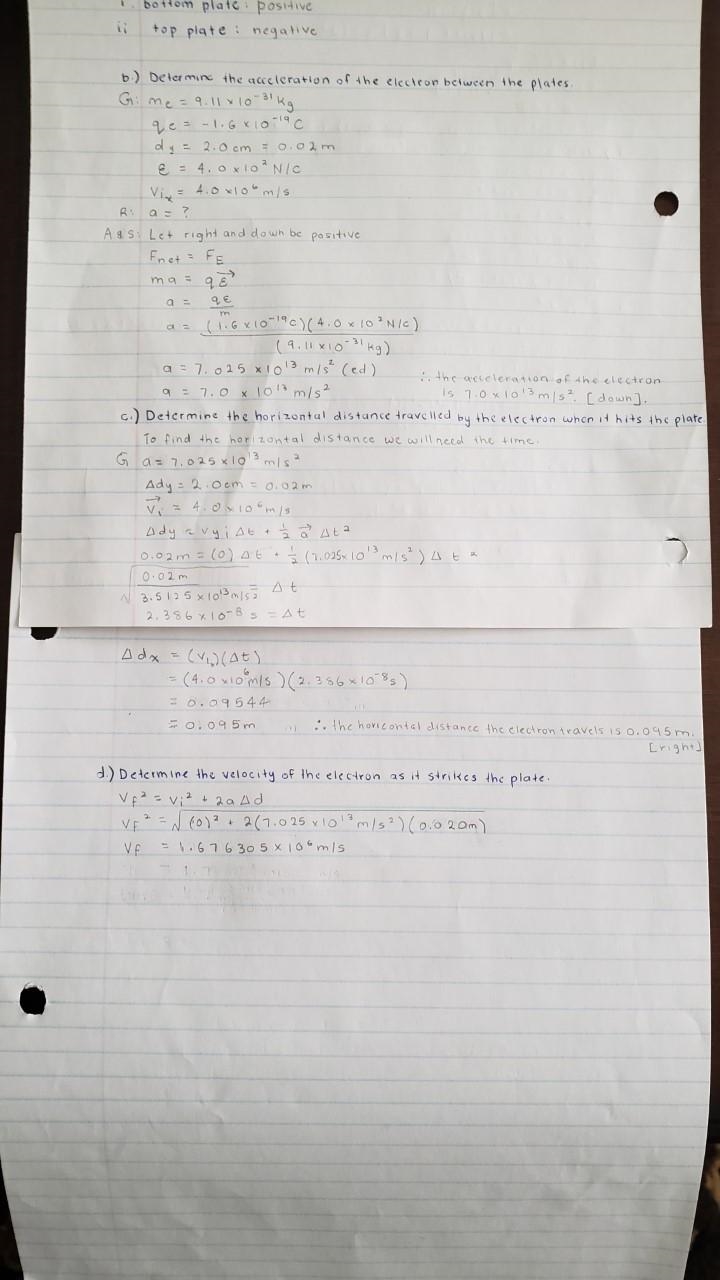 i. bottom plate: positive
ii top plate: negative
b.) Determine the acceleration of the electron between the plates.
G: me = 9.11 x 10⁻³¹ kg
qe = -1.6 x 10⁻¹⁹ C
dy = 2.0cm = 0.02m
ε = 4.0 x 10² N/C
Vix = 4.0 x 10⁶ m/s
R: a = ?
A&S: Let right and down be positive
Fnet = FE
ma = qε⃗
a = qε/m
a = (1.6 x 10⁻¹⁹C)(4.0 x 10² N/C)
(9.11 x 10⁻³¹ kg)
a = 7.025 x 10¹³ m/s² (ed)
a = 7.0 x 10¹³ m/s²
∴ the acceleration of the electron
is 7.0 x 10¹³ m/s². [down].
c.) Determine the horizontal distance travelled by the electron when it hits the plate
To find the horizontal distance we will need the time.
G a = 7.025 x 10¹³ m/s²
Δdy = 2.0cm = 0.02m
V⃗i = 4.0 x 10⁶ m/s
Δdy = vyi Δt + ½ a⃗ Δt²
0.02m = (0) Δt + ½ (7.025x 10¹³ m/s²) Δt²
√(0.02m / 3.5125 x 10¹³ m/s²) = Δt
2.386 x 10⁻⁸ s = Δt
Δdx = (Vix)(Δt)
= (4.0 x 10⁶ m/s)(2.386 x 10⁻⁸s)
= 0.09544
= 0.095m ∴ the horicontal distance the electron travels is 0.095m.
[right]
d.) Determine the velocity of the electron as it strikes the plate.
Vf² = Vi² + 2aΔd
Vf² = √(0)² + 2(7.025 x 10¹³ m/s²)(0.020m)
Vf = 1.676305 x 10⁶ m/s